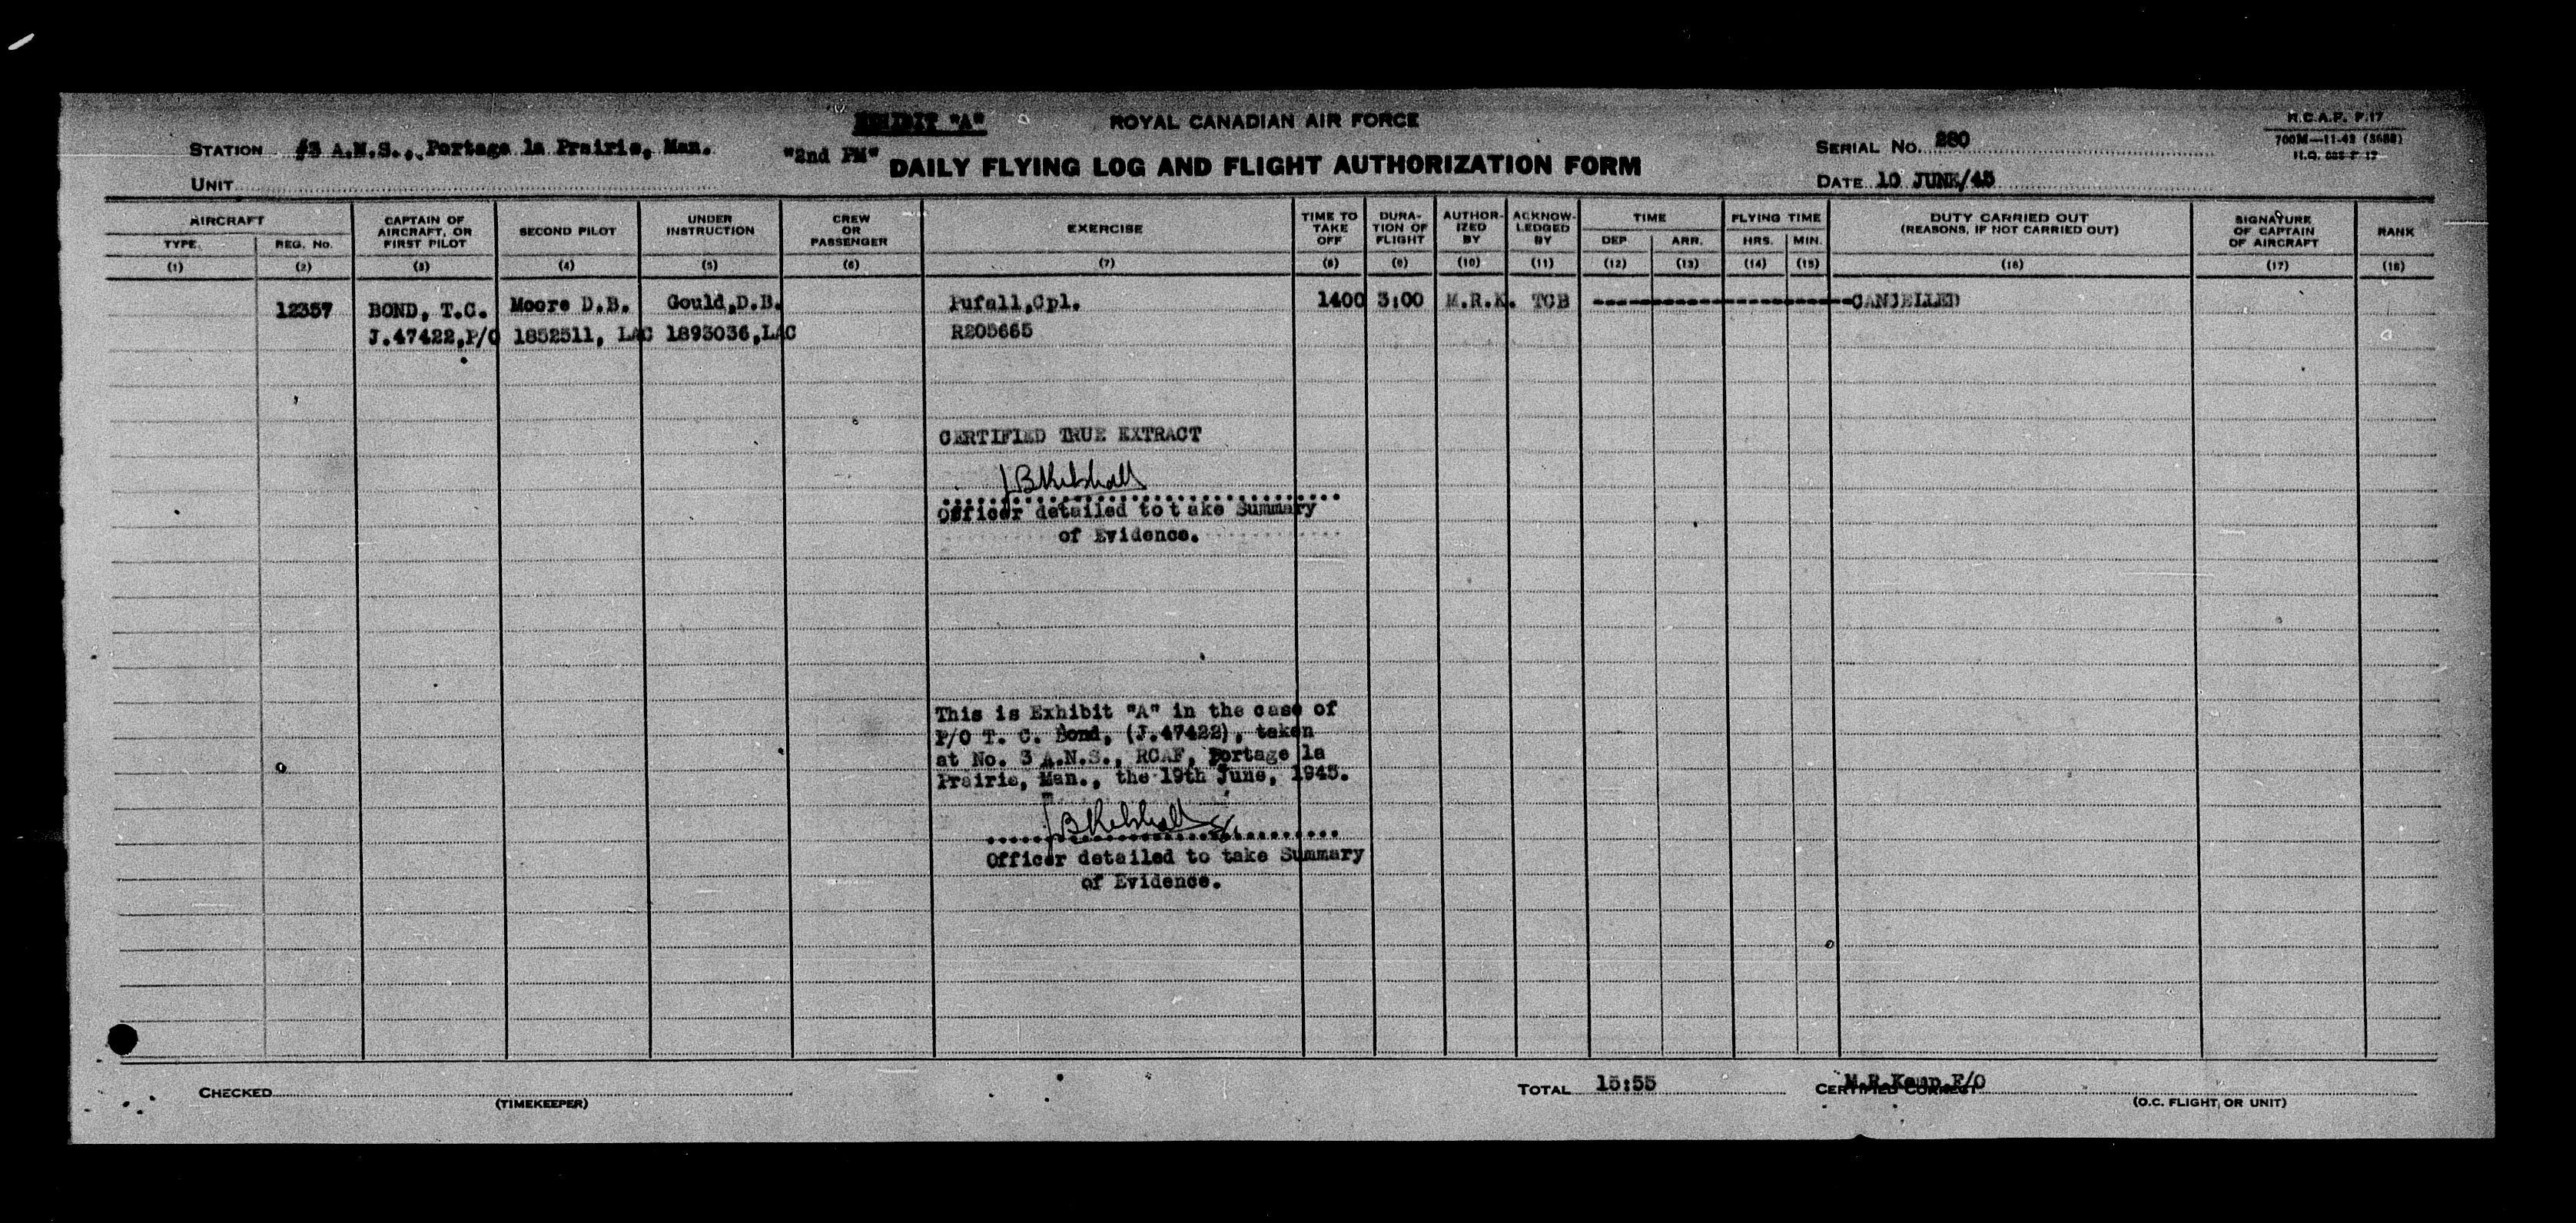 EXHIBIT "A"
ROYAL CANADIAN AIR FORCE
R.C.A.F. F.17
700M—11-42 (3688)
H.Q. 885-F-17
STATION #3 A.N.S., Portage la Prairie, Man.
"2nd PM"
DAILY FLYING LOG AND FLIGHT AUTHORIZATION FORM
SERIAL No. 280
UNIT
DATE 10 JUNE/45
AIRCRAFT
TYPE
REG. No.
CAPTAIN OF
AIRCRAFT, OR
FIRST PILOT
SECOND PILOT
UNDER
INSTRUCTION
CREW
OR
PASSENGER
EXERCISE
TIME TO
TAKE
OFF
DURA-
TION OF
FLIGHT
AUTHOR-
IZED
BY
ACKNOW-
LEDGED
BY
TIME
DEP
ARR.
FLYING TIME
HRS.
MIN.
DUTY CARRIED OUT
(REASONS, IF NOT CARRIED OUT)
SIGNATURE
OF CAPTAIN
OF AIRCRAFT
RANK
(1) (2) (3) (4) (5) (6) (7) (8) (9) (10) (11) (12) (13) (14) (15) (16) (17) (18)
12357 BOND, T.C. Moore D.B. Gould,D.B. Pufall,Cpl. 1400 3:00 M.R.K. TCB CANCELLED
J.47422,P/O 1852511, LAC 1893036,LAC R205665
CERTIFIED TRUE EXTRACT
Officer detailed to take Summary
of Evidence.
This is Exhibit "A" in the case of
P/O T. C. Bond, (J.47422), taken
at No. 3 A.N.S., RCAF, Portage la
Prairie, Man., the 19th June, 1945.
Officer detailed to take Summary
of Evidence.
CHECKED
(TIMEKEEPER)
TOTAL 15:55
CERTIFIED CORRECT M.R.Kemp F/O
(O.C. FLIGHT, OR UNIT)